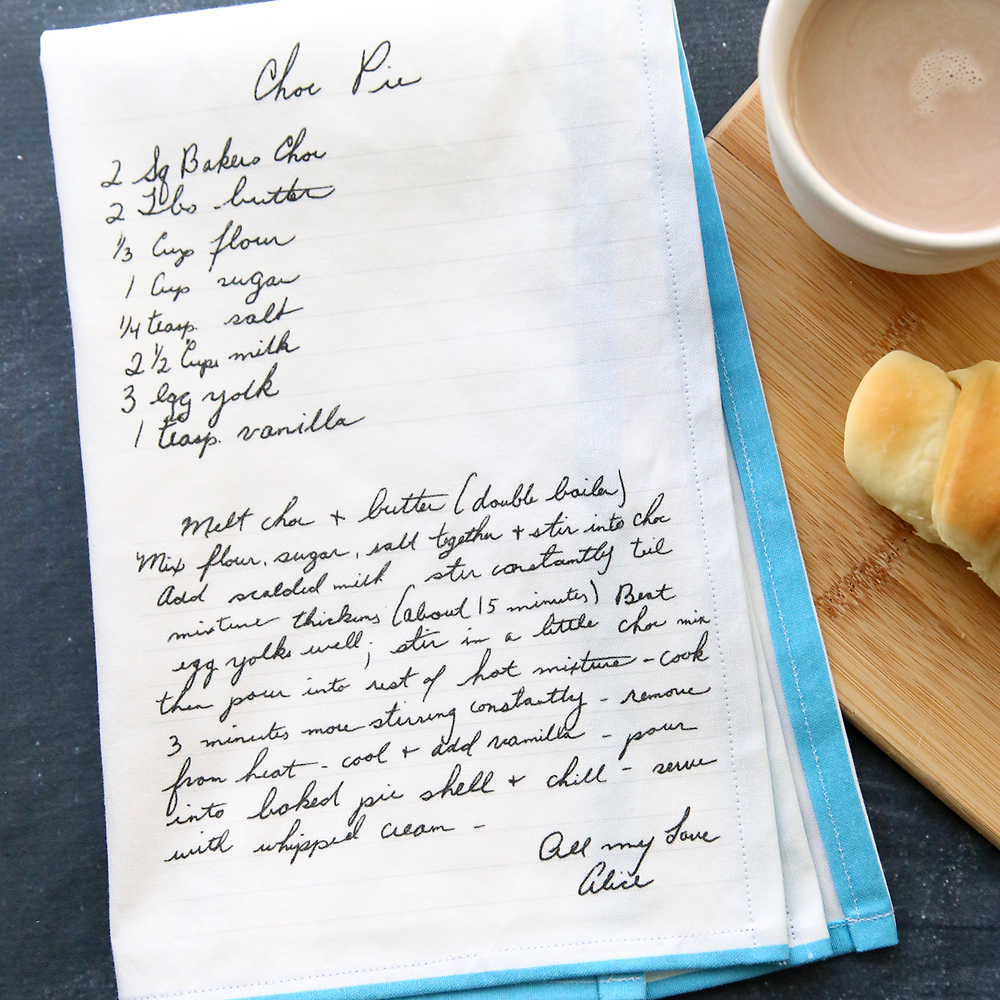 Choc Pie
2 Sq Bakers Choc
2 Tbs butter
1/3 Cup flour
1 Cup sugar
1/4 teasp. salt
2 1/2 Cups milk
3 egg yolk
1 teasp. vanilla
Melt choc + butter (double boiler)
Mix flour, sugar, salt together + stir into choc
Add scalded milk stir constantly til
mixture thickens (about 15 minutes) Beat
egg yolks well; stir in a little choc mix
then pour into rest of hot mixture - cook
3 minutes more stirring constantly - remove
from heat - cool + add vanilla - pour
into baked pie shell + chill - serve
with whipped cream -
All my Love
Alice